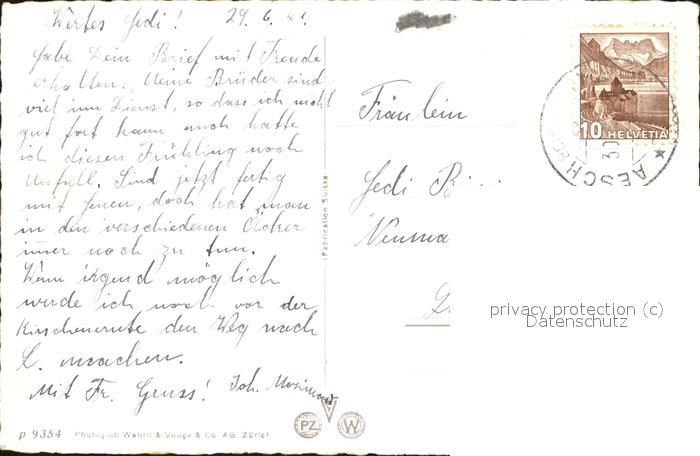 Wertes Hedi! 29.6.41.
Habe Dein Brief mit Freude
erhalten. Meine Brüder sind
viel im Dienst, so dass ich nicht
gut fort kann auch hatte
ich diesen Frühling noch
Unfall. Sind jetzt fertig
mit heuen, doch hat man
in den verschiedenen Äcker
imer noch zu tun.
Wenn irgend möglich
werde ich noch vor der
Kirschenernte den Weg nach
L. machen.
Mit Fr. Gruss! Joh.
p 9354 Photoglob-Wehrli & Vouga & Co. AG. Zürich
Fabrication Suisse
PZ W
10 HELVETIA
AESCH
30
Fräulein
Hedi
privacy protection (c)
Datenschutz